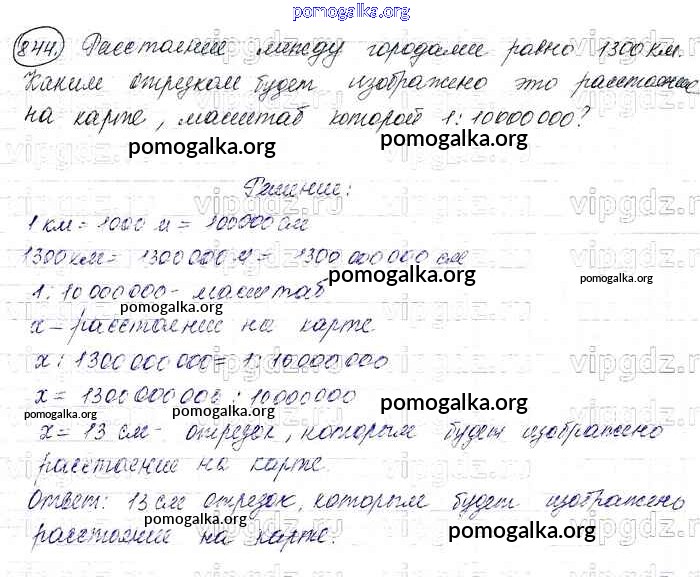 pomogalka.org
844. Расстояние между городами равно 1300 км.
Каким отрезком будет изображено это расстояние
на карте, масштаб которой 1:10000000?
pomogalka.org
pomogalka.org
Решение:
vipgdz.ru
1 км = 1000 м = 100000 см
1300 км = 1300 000 м = 1300 000 000 см
pomogalka.org
pomogalka.org
1:10 000 000 - масштаб
pomogalka.org
x - расстояние на карте.
x : 1300 000 000 = 1:10000000
vipgdz.ru
x = 1300 000 000 : 10000000
pomogalka.org
pomogalka.org
pomogalka.org
x = 13 см - отрезок, которым будет изображено
расстояние на карте.
vipgdz.ru
Ответ: 13 см отрезок, которым будет изображено
pomogalka.org
pomogalka.org
расстояние на карте.